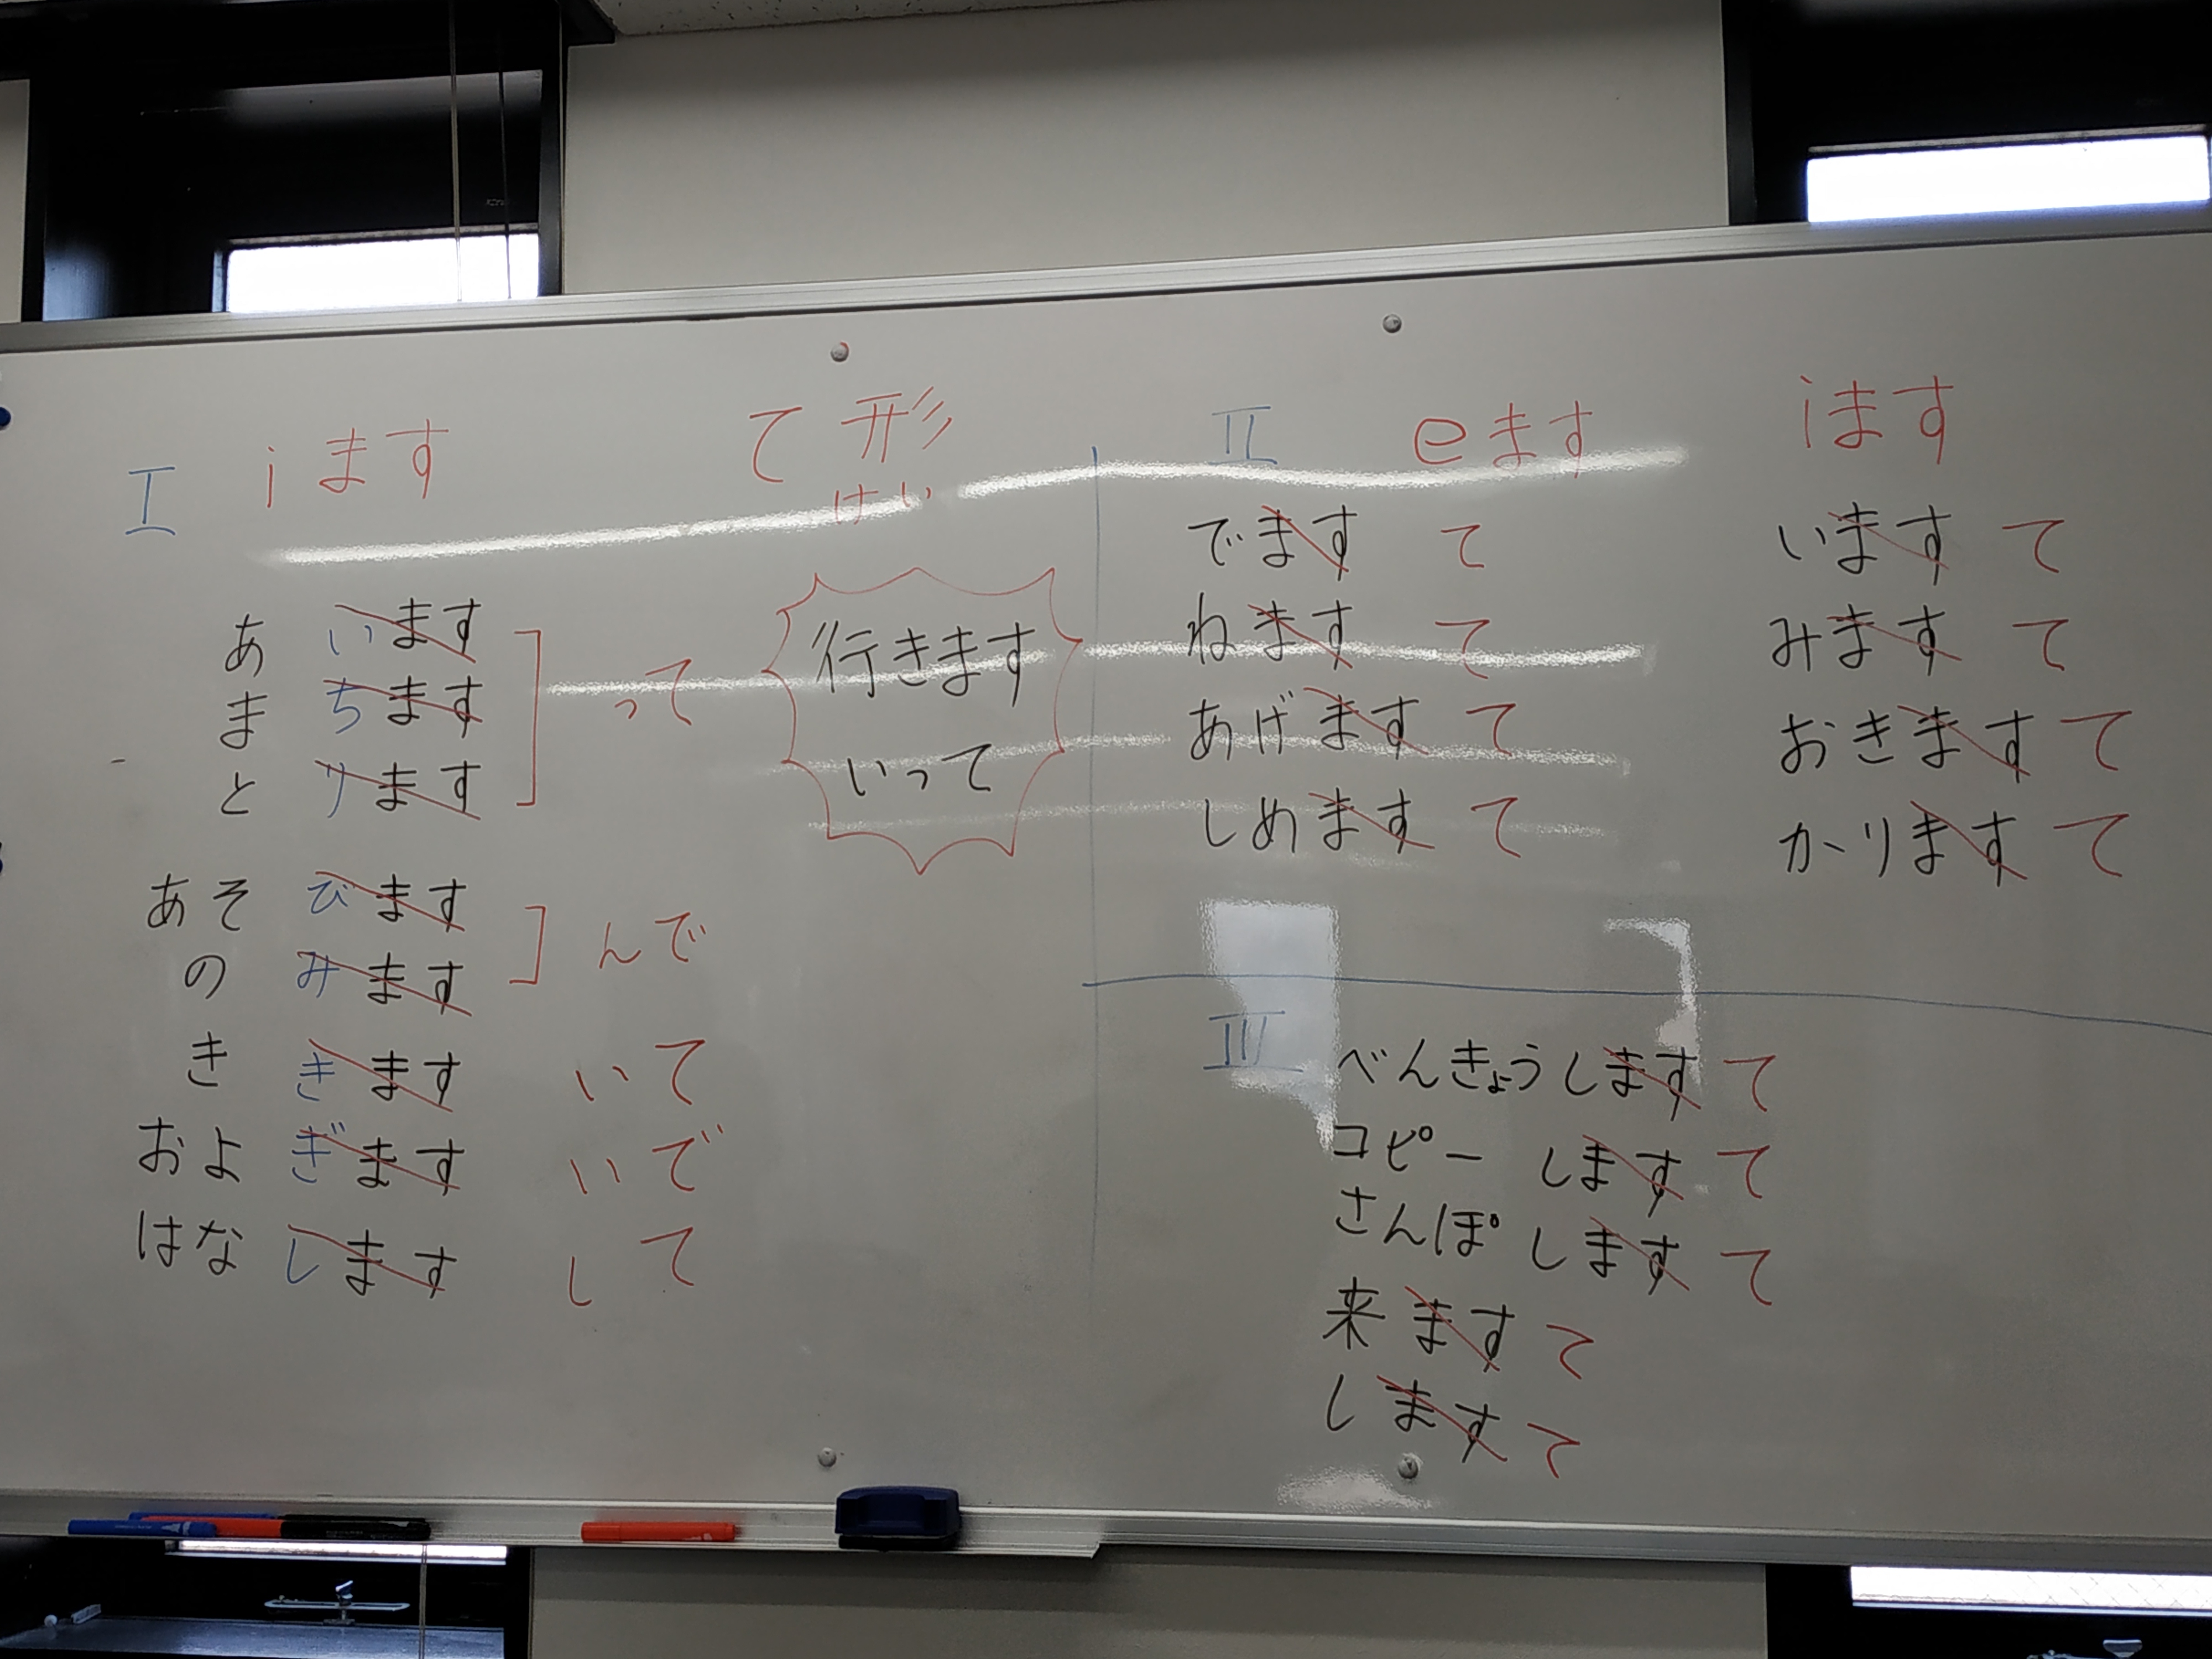 て形
けい
I iます
あいます
まちます
とります
って
あそびます
のみます
んで
ききます いて
およぎます いで
はなします して
行きます
いって
II eます iます
でます て
ねます て
あげます て
しめます て
います て
みます て
おきます て
かります て
III べんきょうします て
コピーします て
さんぽします て
来ます て
します て